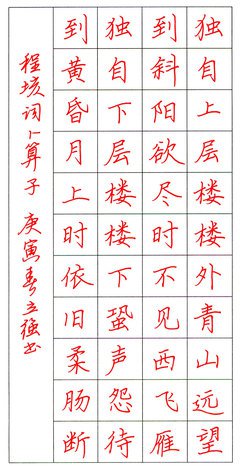 独自上层楼楼外青山远望
到斜阳欲尽时不见西飞雁
独自下层楼楼下蛩声怨待
到黄昏月上时依旧柔肠断
程垓词卜算子 庚寅春立强书